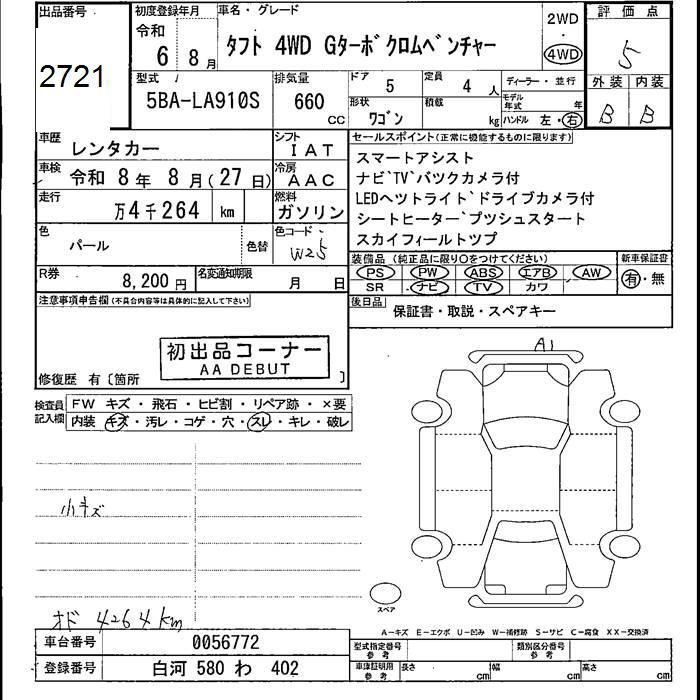 出品番号
2721
初度登録年月
令和
6 8月
車名・グレード
タフト 4WD Gターボ クロムベンチャー
2WD
4WD
評価点
5
外装 内装
B B
型式
5BA-LA910S
排気量
660
CC
ドア
5
定員
4 人
形状
ワゴン
積載
kg
ディーラー・並行
モデル年式
年
ハンドル 左・右
車歴
レンタカー
シフト
IAT
車検
令和 8年 8月(27日)
冷房
AAC
走行
万4千264 km
燃料
ガソリン
色
パール
色替
色コード
W25
R券
8,200円
名変通知期限
月 日
セールスポイント(正常に機能するものに限ります)
スマートアシスト
ナビ゙TV゙バツクカメラ付
LEDヘツトライドドライブカメラ付
シートヒーター゙プツシュスタート
スカイフィールトツプ
装備品(純正品に限り○をつけてください)
PS PW ABS エアB AW
SR ナビ TV カワ
新車保証書
有・無
後日品
保証書・取説・スペアキー
注意事項申告欄(不具合内容等は具体的に記入して下さい)
初出品コーナー
AA DEBUT
修復歴 有〔箇所 〕
検査員記入欄
FW キズ・飛石・ヒビ割・リペア跡・×要
内装 キズ・汚レ・コゲ・穴・スレ・キレ・破レ
小キズ
オド 4264km
A1
スペア
A-キズ E-エクボ U-凹み W-補修跡 S-サビ C-腐食 XX-交換済
車台番号
0056772
登録番号
白河 580 わ 402
型式指定番号
参考
類別区分番号
参考
車庫証明用
参考
長さ cm 幅 cm 高さ cm